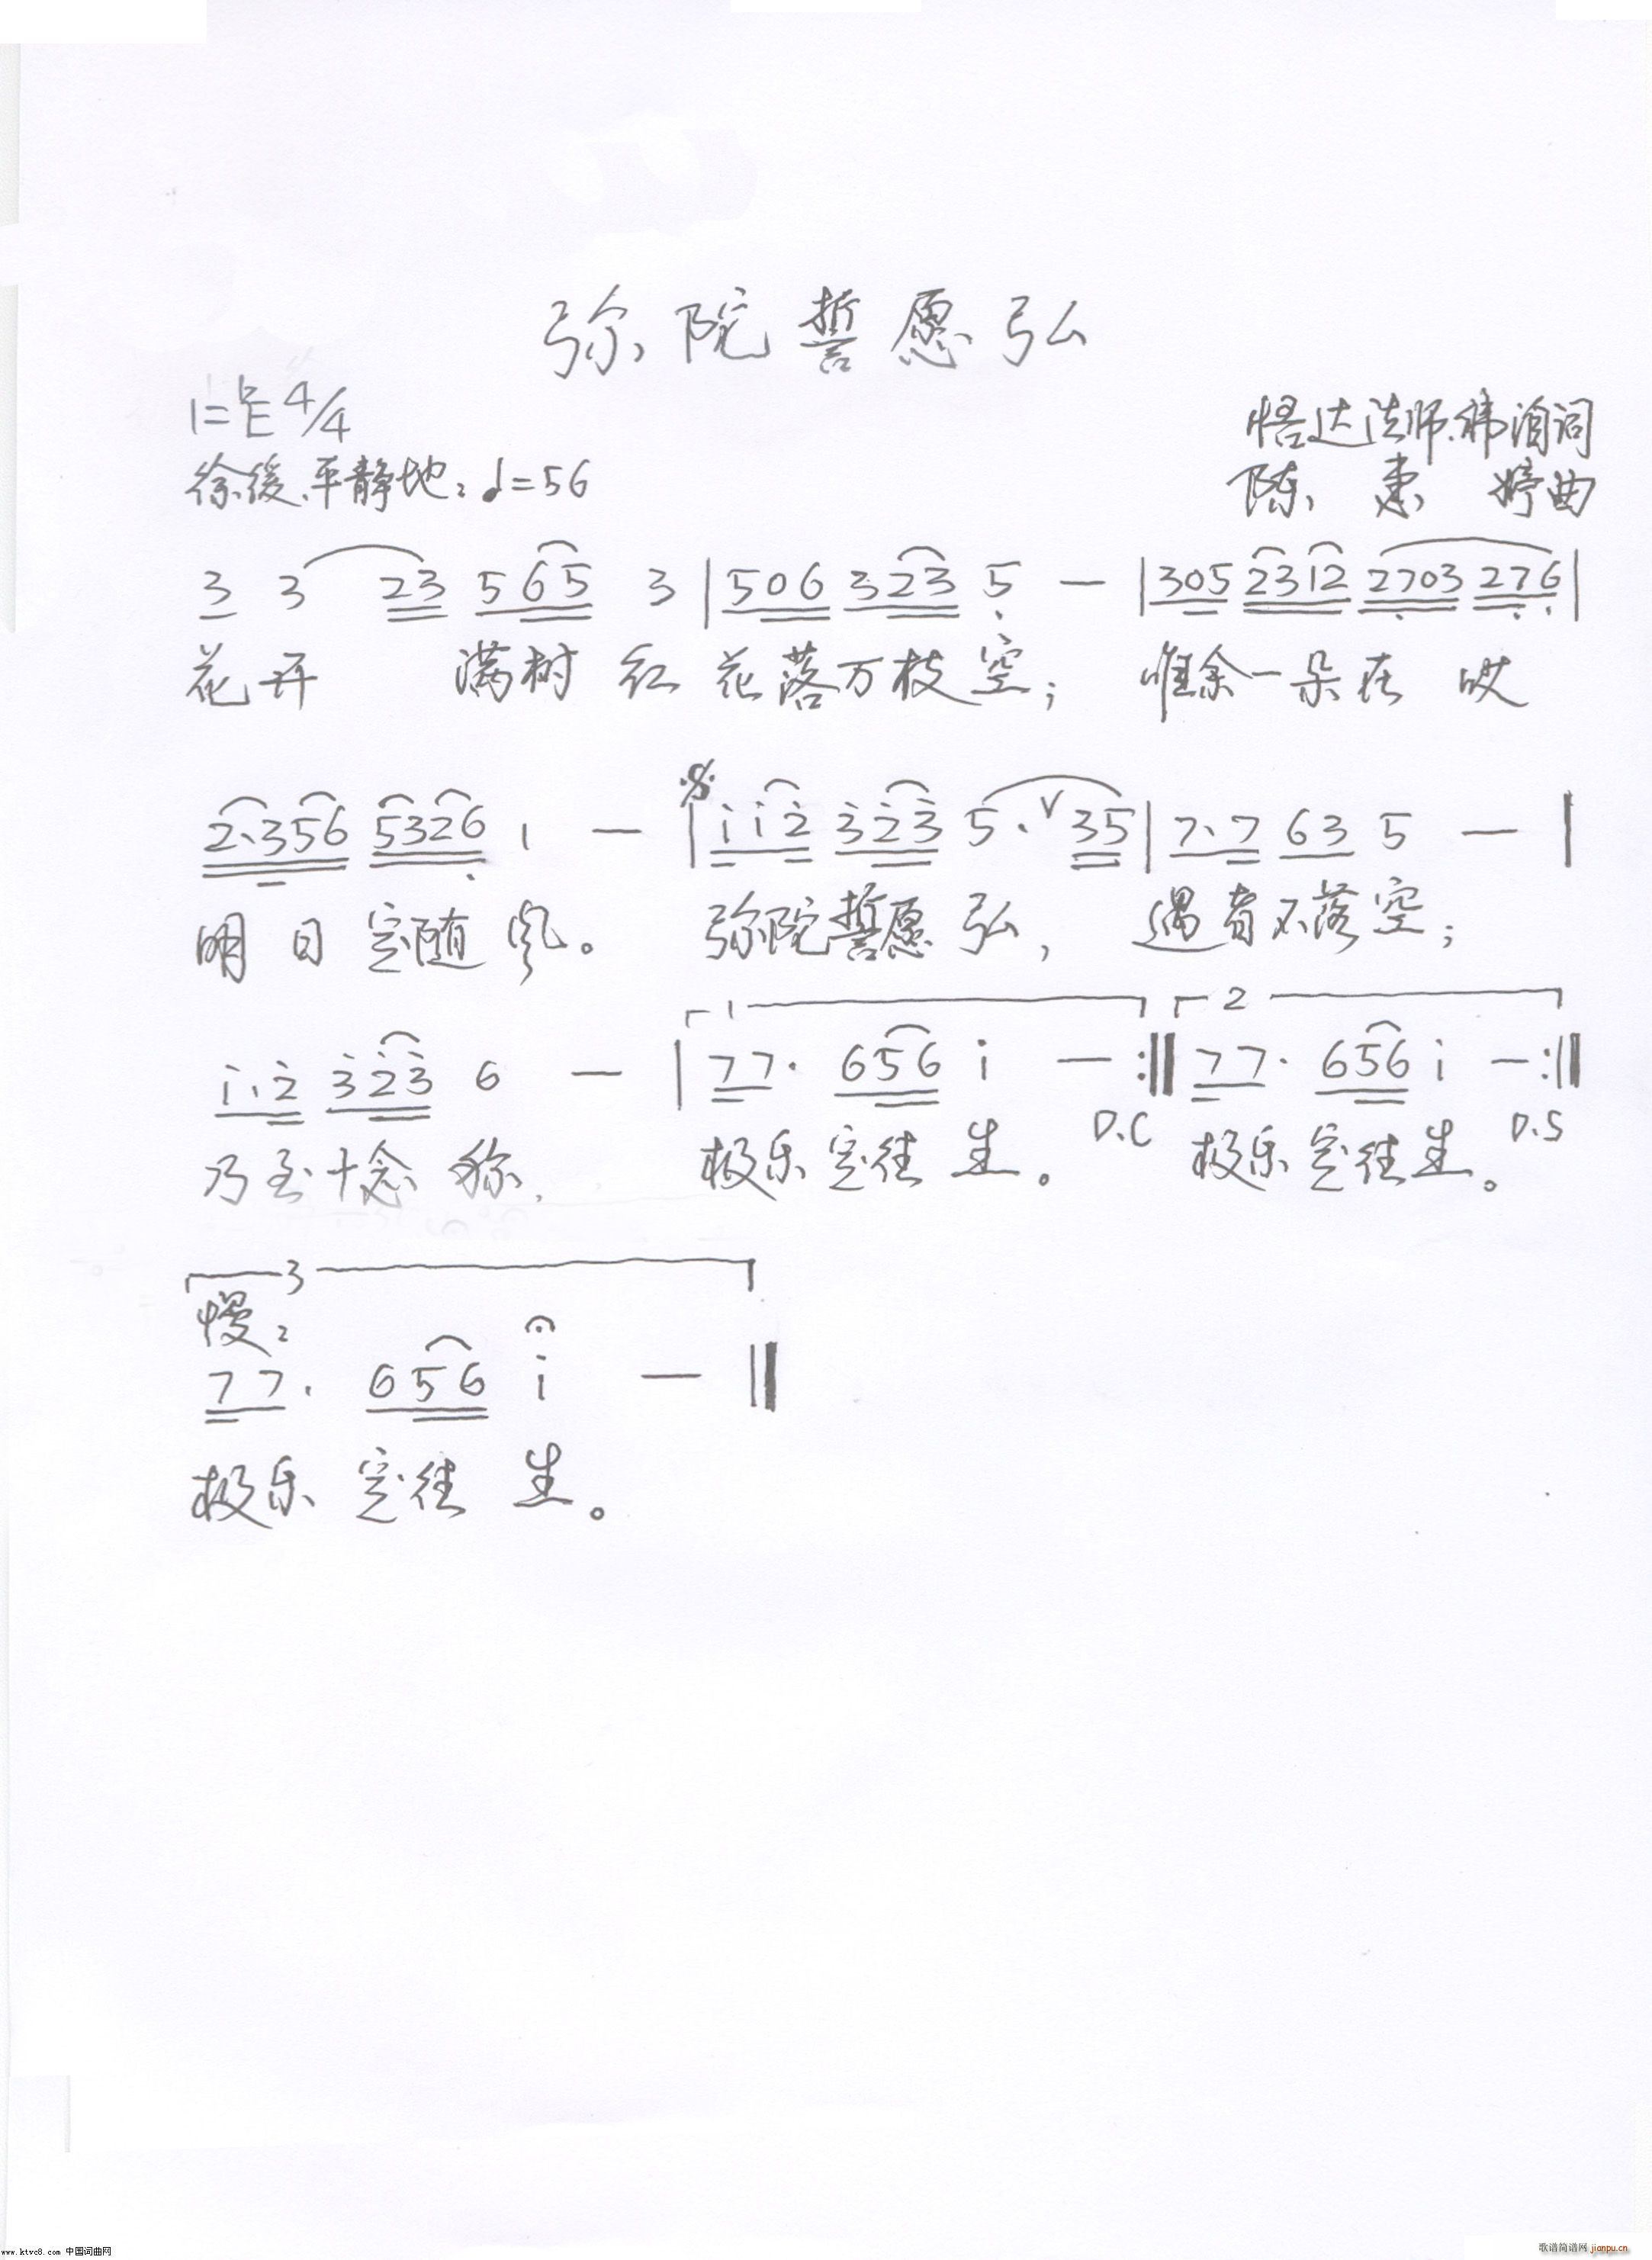 弥陀誓愿弘
1=♭E 4/4
悟达法师、祎洵词
徐缓、平静地: ♩=56
陈 惠 婷曲
3 3 23 565 3 | 506 323 5 — | 305 2312 2703 276 |
花开 满树 红 花落万枝空; 唯余一朵在 哎
2·356 5326 1 — | 112 323 5· V 35 | 7·7 63 5 — |
明日定随风。 弥陀誓愿弘, 遇者不落空;
1 2
1·2 323 6 — | 77· 656 1 — :‖ 77· 656 1 — :‖
D.C D.S
乃至十念称, 极乐定往生。 极乐定往生。
3
慢:
77· 656 1 — ‖
极乐 定往 生。
www.ktvc8.com 中国词曲网
歌谱简谱网 jianpu.cn